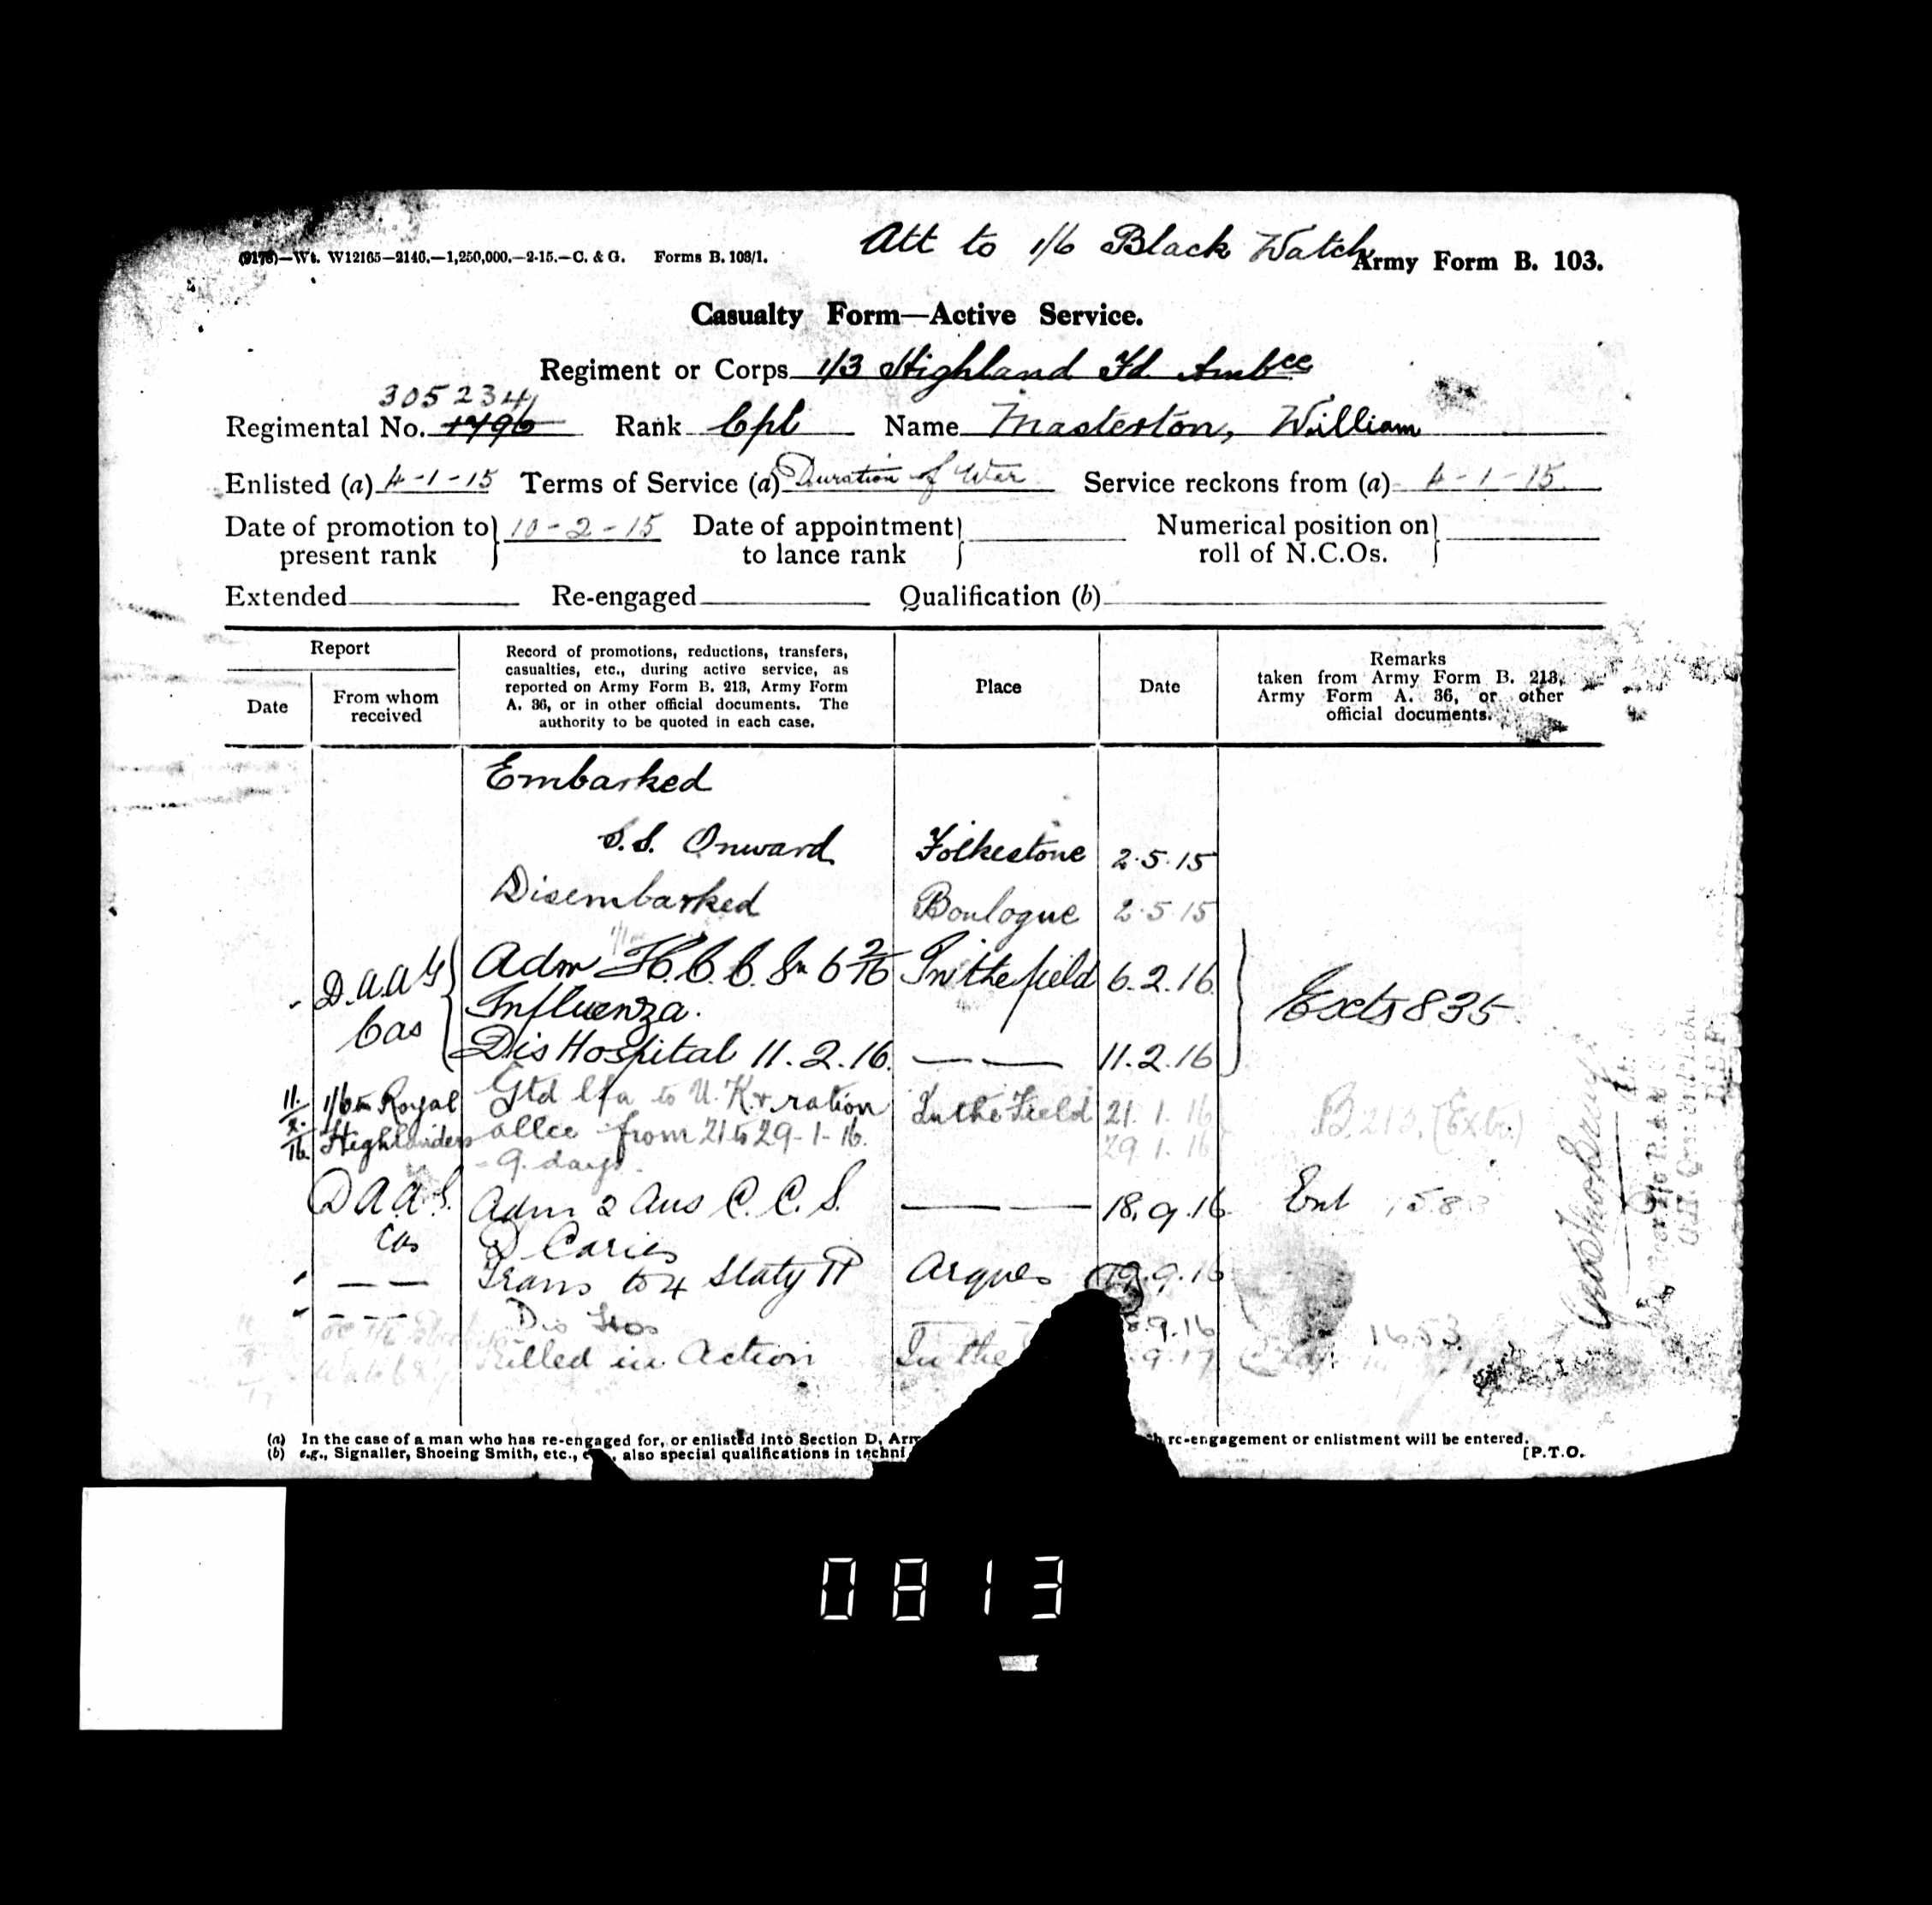 Att to 1/6 Black Watch
(9176)—Wt. W12165—2140.—1,250,000.—2-15.—C. & G. Forms B. 103/1. Army Form B. 103.
Casualty Form—Active Service.
Regiment or Corps 1/3 Highland Fd Ambce
305234
Regimental No. 1796 Rank Cpl Name Masterton, William
Enlisted (a) 4-1-15 Terms of Service (a) Duration of War Service reckons from (a) 4-1-15
Date of promotion to present rank } 10-2-15 Date of appointment to lance rank } Numerical position on roll of N.C.Os. }
Extended Re-engaged Qualification (b)
Report
Date
From whom received
Record of promotions, reductions, transfers,
casualties, etc., during active service, as
reported on Army Form B. 213, Army Form
A. 36, or in other official documents. The
authority to be quoted in each case.
Place
Date
Remarks
taken from Army Form B. 213,
Army Form A. 36, or other
official documents.
Embarked
S.S. Onward Folkestone 2.5.15
Disembarked Boulogne 2.5.15
D.A.A.G Adm H.C.C.Sn 6 2/16 In the field 6.2.16
Cas Influenza. Exts 835
Dis Hospital 11.2.16. — — 11.2.16
11. 1/6th Royal Gtd lfa to U.K & ration In the Field 21.1.16 B.213. (Extr.)
16 Highlanders allce from 21 to 29-1-16. 29.1.16
- 9. days.
D A A G. Adm 2 Aus C.C.S. — — 18.9.16
Cas D Caries
— — Trans to 4 Staty H Arques 19.9.16
- - - Dis Hos .9.16 1653
Killed in Action In the 9.17
(a) In the case of a man who has re-engaged for, or enlisted into Section D, Arm re-engagement or enlistment will be entered.
(b) e.g., Signaller, Shoeing Smith, etc., also special qualifications in techni [P.T.O.
0813